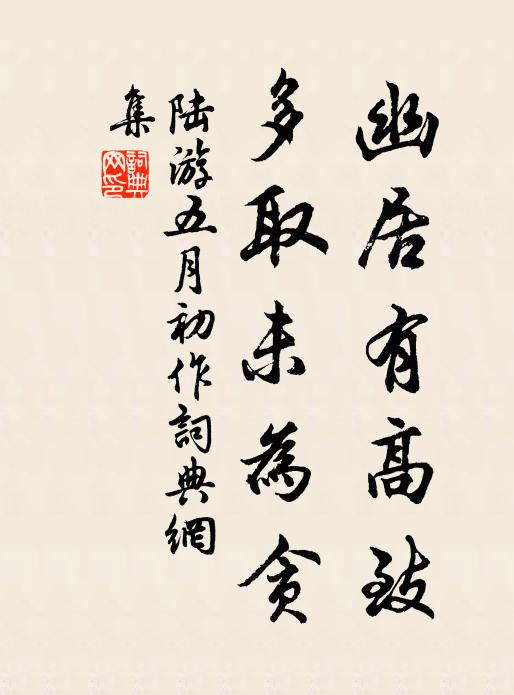 幽居有高致
多取未為貪
陆游五月初作詞典網
集
詞典
网印